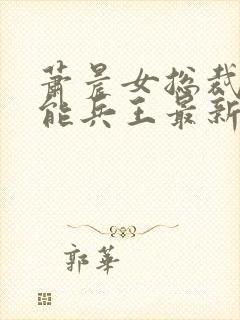 萧晨女总裁
能兵王最新
郭华